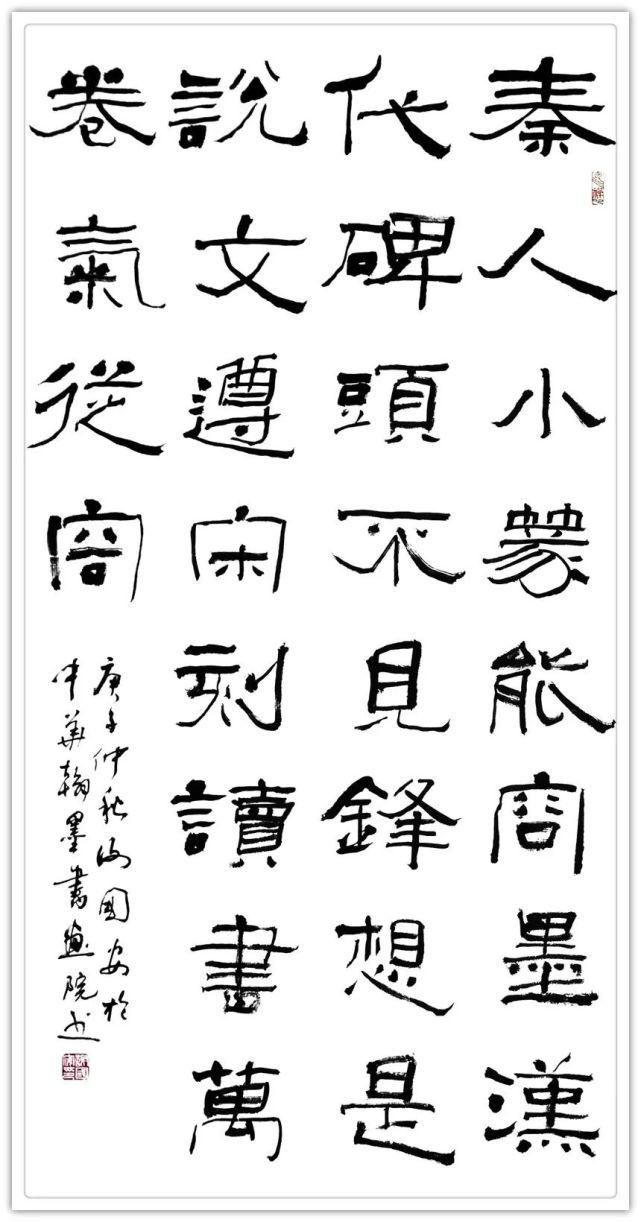 秦人小篆能容墨漢
代碑頭不見鋒想是
說文遵宋刻讀書萬
卷氣從容
庚子仲秋國安於
中華翰墨書畫院